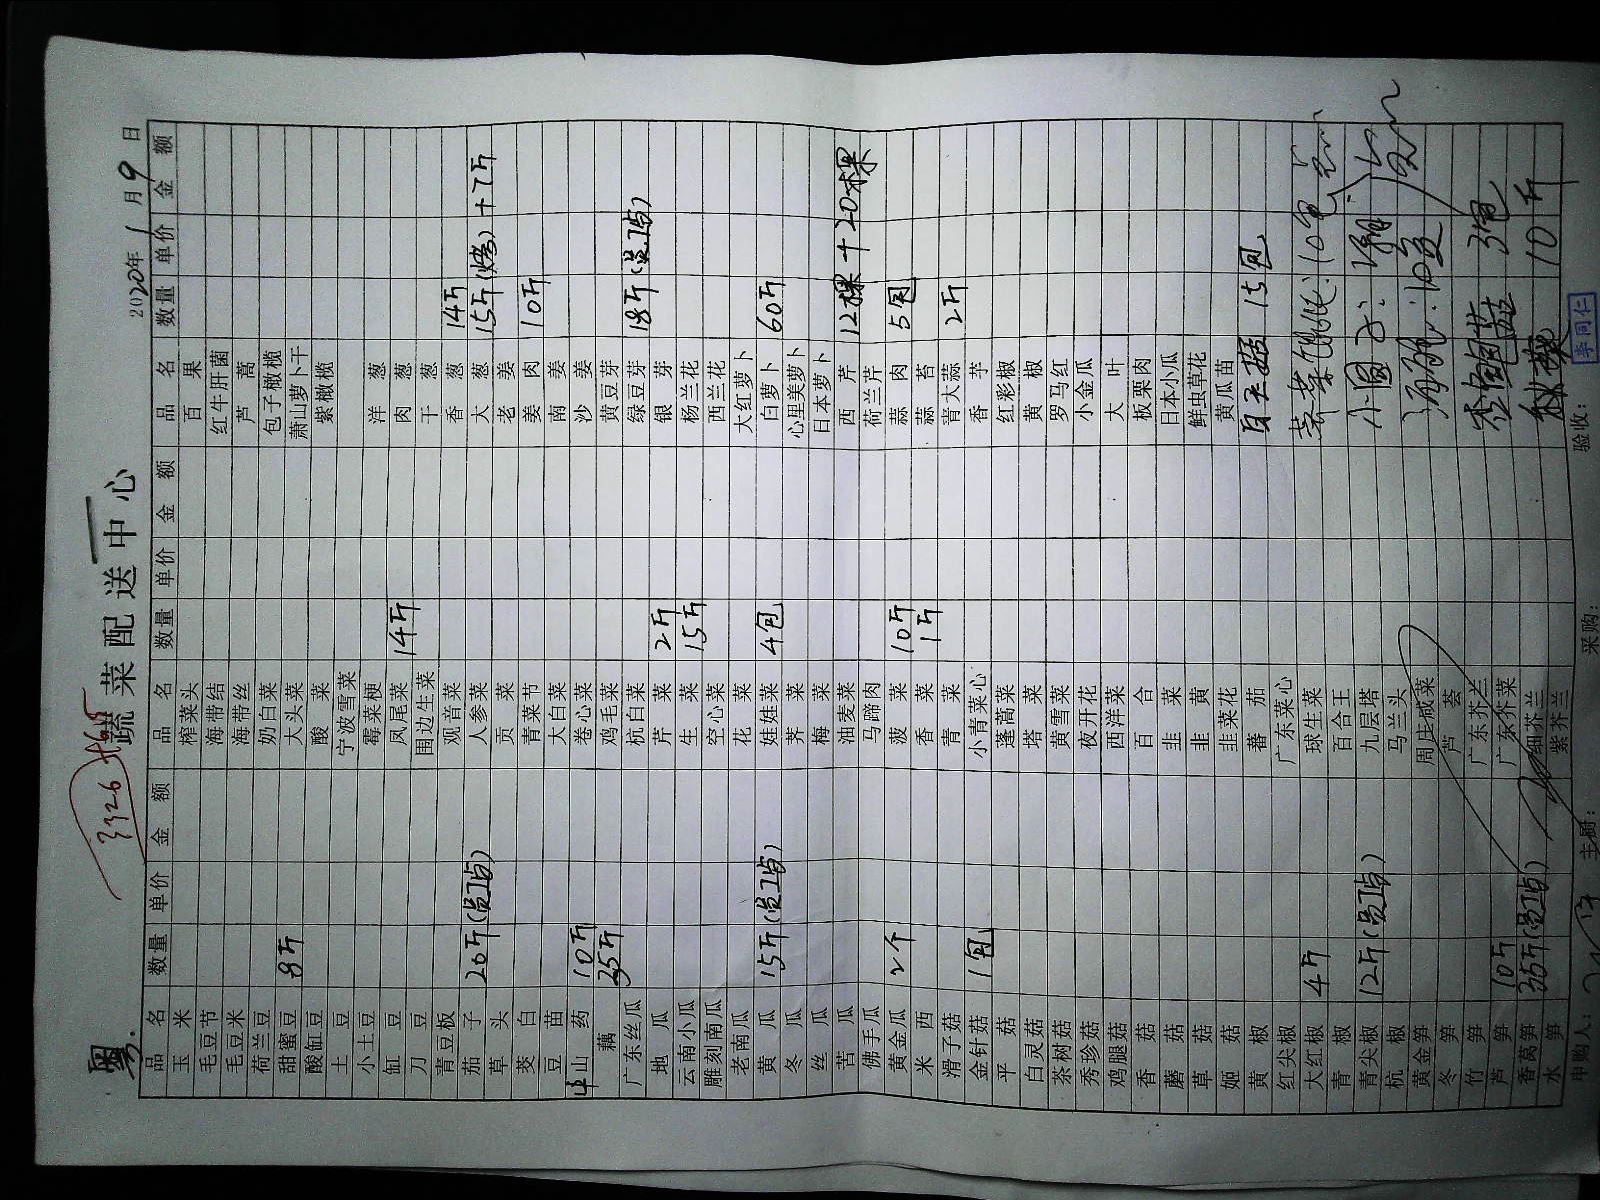 粤.
3326
蔬菜配送中心
2020年1月9日
品名 数量 单价 金额 品名 数量 单价 金额 品名 数量 单价 金额
玉米 榨菜头 百果
毛豆节 海带结 红牛肝菌
毛豆米 海带丝 芦蒿
荷兰豆 奶白菜 包子橄榄
甜蜜豆 8斤 大头菜 萧山萝卜干
酸缸豆 酸菜 紫橄榄
土豆 宁波雪菜
小土豆 霉菜梗 洋葱
缸豆 凤尾菜 14斤 肉葱
刀豆 围边生菜 干葱
青豆板 观音菜 香葱 14斤
茄子 20斤(员工点) 人参菜 大葱 15斤(烤)+7斤
草头 贡菜 老姜
茭白 青菜节 姜肉 10斤
豆苗 大白菜 南姜
山药 10斤 卷心菜 沙姜
藕 35斤 鸡毛菜 黄豆芽
广东丝瓜 杭白菜 绿豆芽 18斤(员工点)
地瓜 芹菜 2斤 银芽
云南小瓜 生菜 15斤 杨兰花
雕刻南瓜 空心菜 西兰花
老南瓜 花菜 大红萝卜
黄瓜 15斤(员工点) 娃娃菜 4包 白萝卜 60斤
冬瓜 荠菜 心里美萝卜
丝瓜 梅菜 日本萝卜
苦瓜 油麦菜 西芹 12棵+20棵
佛手瓜 马蹄肉 荷兰芹
黄金瓜 2个 菠菜 10斤 蒜肉 5包
米西 香菜 1斤 蒜苔
滑子菇 青菜 青大蒜 2斤
金针菇 1包 小青菜心 香芋
平菇 蓬蒿菜 红彩椒
白灵菇 塔菜 黄椒
茶树菇 黄雪菜 罗马红
秀珍菇 夜开花 小金瓜
鸡腿菇 西洋菜 大叶
香菇 百合 板栗肉
蘑菇 韭菜 日本小瓜
草菇 韭黄 鲜虫草花
姬菇 韭菜花 黄瓜苗
黄椒 蕃茄 白玉菇 15包
红尖椒 广东菜心
大红椒 4斤 球生菜 荠菜馄饨:10包
青椒 百合王
青尖椒 12斤(员工点) 九层塔 小圆子:
杭椒 马兰头
黄金笋 周庄咸菜
冬笋 芦荟
竹笋 广东芥兰 杏鲍菇 3包
芦笋 10斤 广东芥菜
香莴笋 35斤(员工点) 细芥兰 秋葵 10斤
水笋 紫芥兰
申购人: 主厨: 采购: 验收:
李同仁